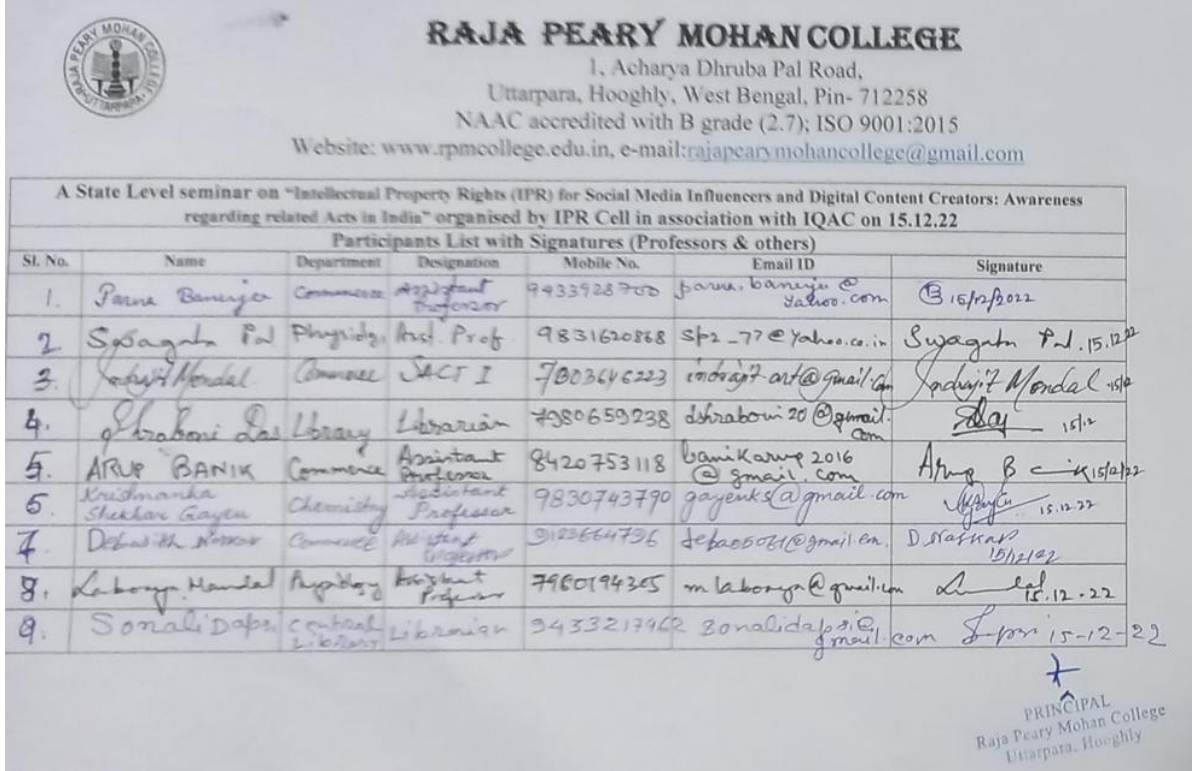 RAJA PEARY MOHAN COLLEGE
1, Acharya Dhruba Pal Road,
Uttarpara, Hooghly, West Bengal, Pin- 712258
NAAC accredited with B grade (2.7); ISO 9001:2015
Website: www.rpmcollege.edu.in, e-mail:rajapearymohancollege@gmail.com
RAJA PEARY MOHAN COLLEGE UTTARPARA
A State Level seminar on "Intellectual Property Rights (IPR) for Social Media Influencers and Digital Content Creators: Awareness
regarding related Acts in India" organised by IPR Cell in association with IQAC on 15.12.22
Participants List with Signatures (Professors & others)
Sl. No. Name Department Designation Mobile No. Email ID Signature
1. Parna Banerjee Commerce Assistant Professor 9433928700 parna.banerje@yahoo.com 15/12/2022
2 Swagata Pal Asst. Prof. 9831620868 sp2_77@yahoo.co.in Swagata Pal. 15.12.22
3. Indrajit Mondal Commerce SACT I 7803646223 indrajit.art@gmail.com Indrajit Mondal 15/12
4. Shraboni Das Library Librarian 7980659238 dshraboni20@gmail.com 15/12
5. ARUP BANIK Commerce Assistant Professor 8420753118 banikarup2016@gmail.com Arup B 15/12/22
6. Krishnanka Shekhar Gayen Chemistry Assistant Professor 9830743790 gayenks@gmail.com 15.12.22
7. Debasith Naskar Commerce Assistant Professor D. Naskar 15/12/22
8. Labonya Mandal Assistant Professor m labonya@gmail.com 15.12.22
9. Sonali Dapsi Central Library Librarian 9433217962 sonalidapsi@gmail.com 15-12-22
PRINCIPAL
Raja Peary Mohan College
Uttarpara, Hooghly